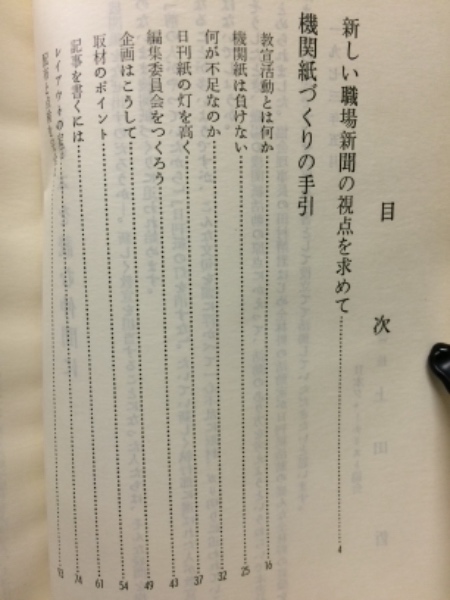 目次
新しい職場新聞の視点を求めて……4
機関紙づくりの手引
教宣活動とは何か……16
機関紙は負けない……25
何が不足なのか……32
日刊紙の灯を高く……37
編集委員会をつくろう……43
企画はこうして……49
取材のポイント……54
記事を書くには……61
レイアウトの……74
配布と点検……93